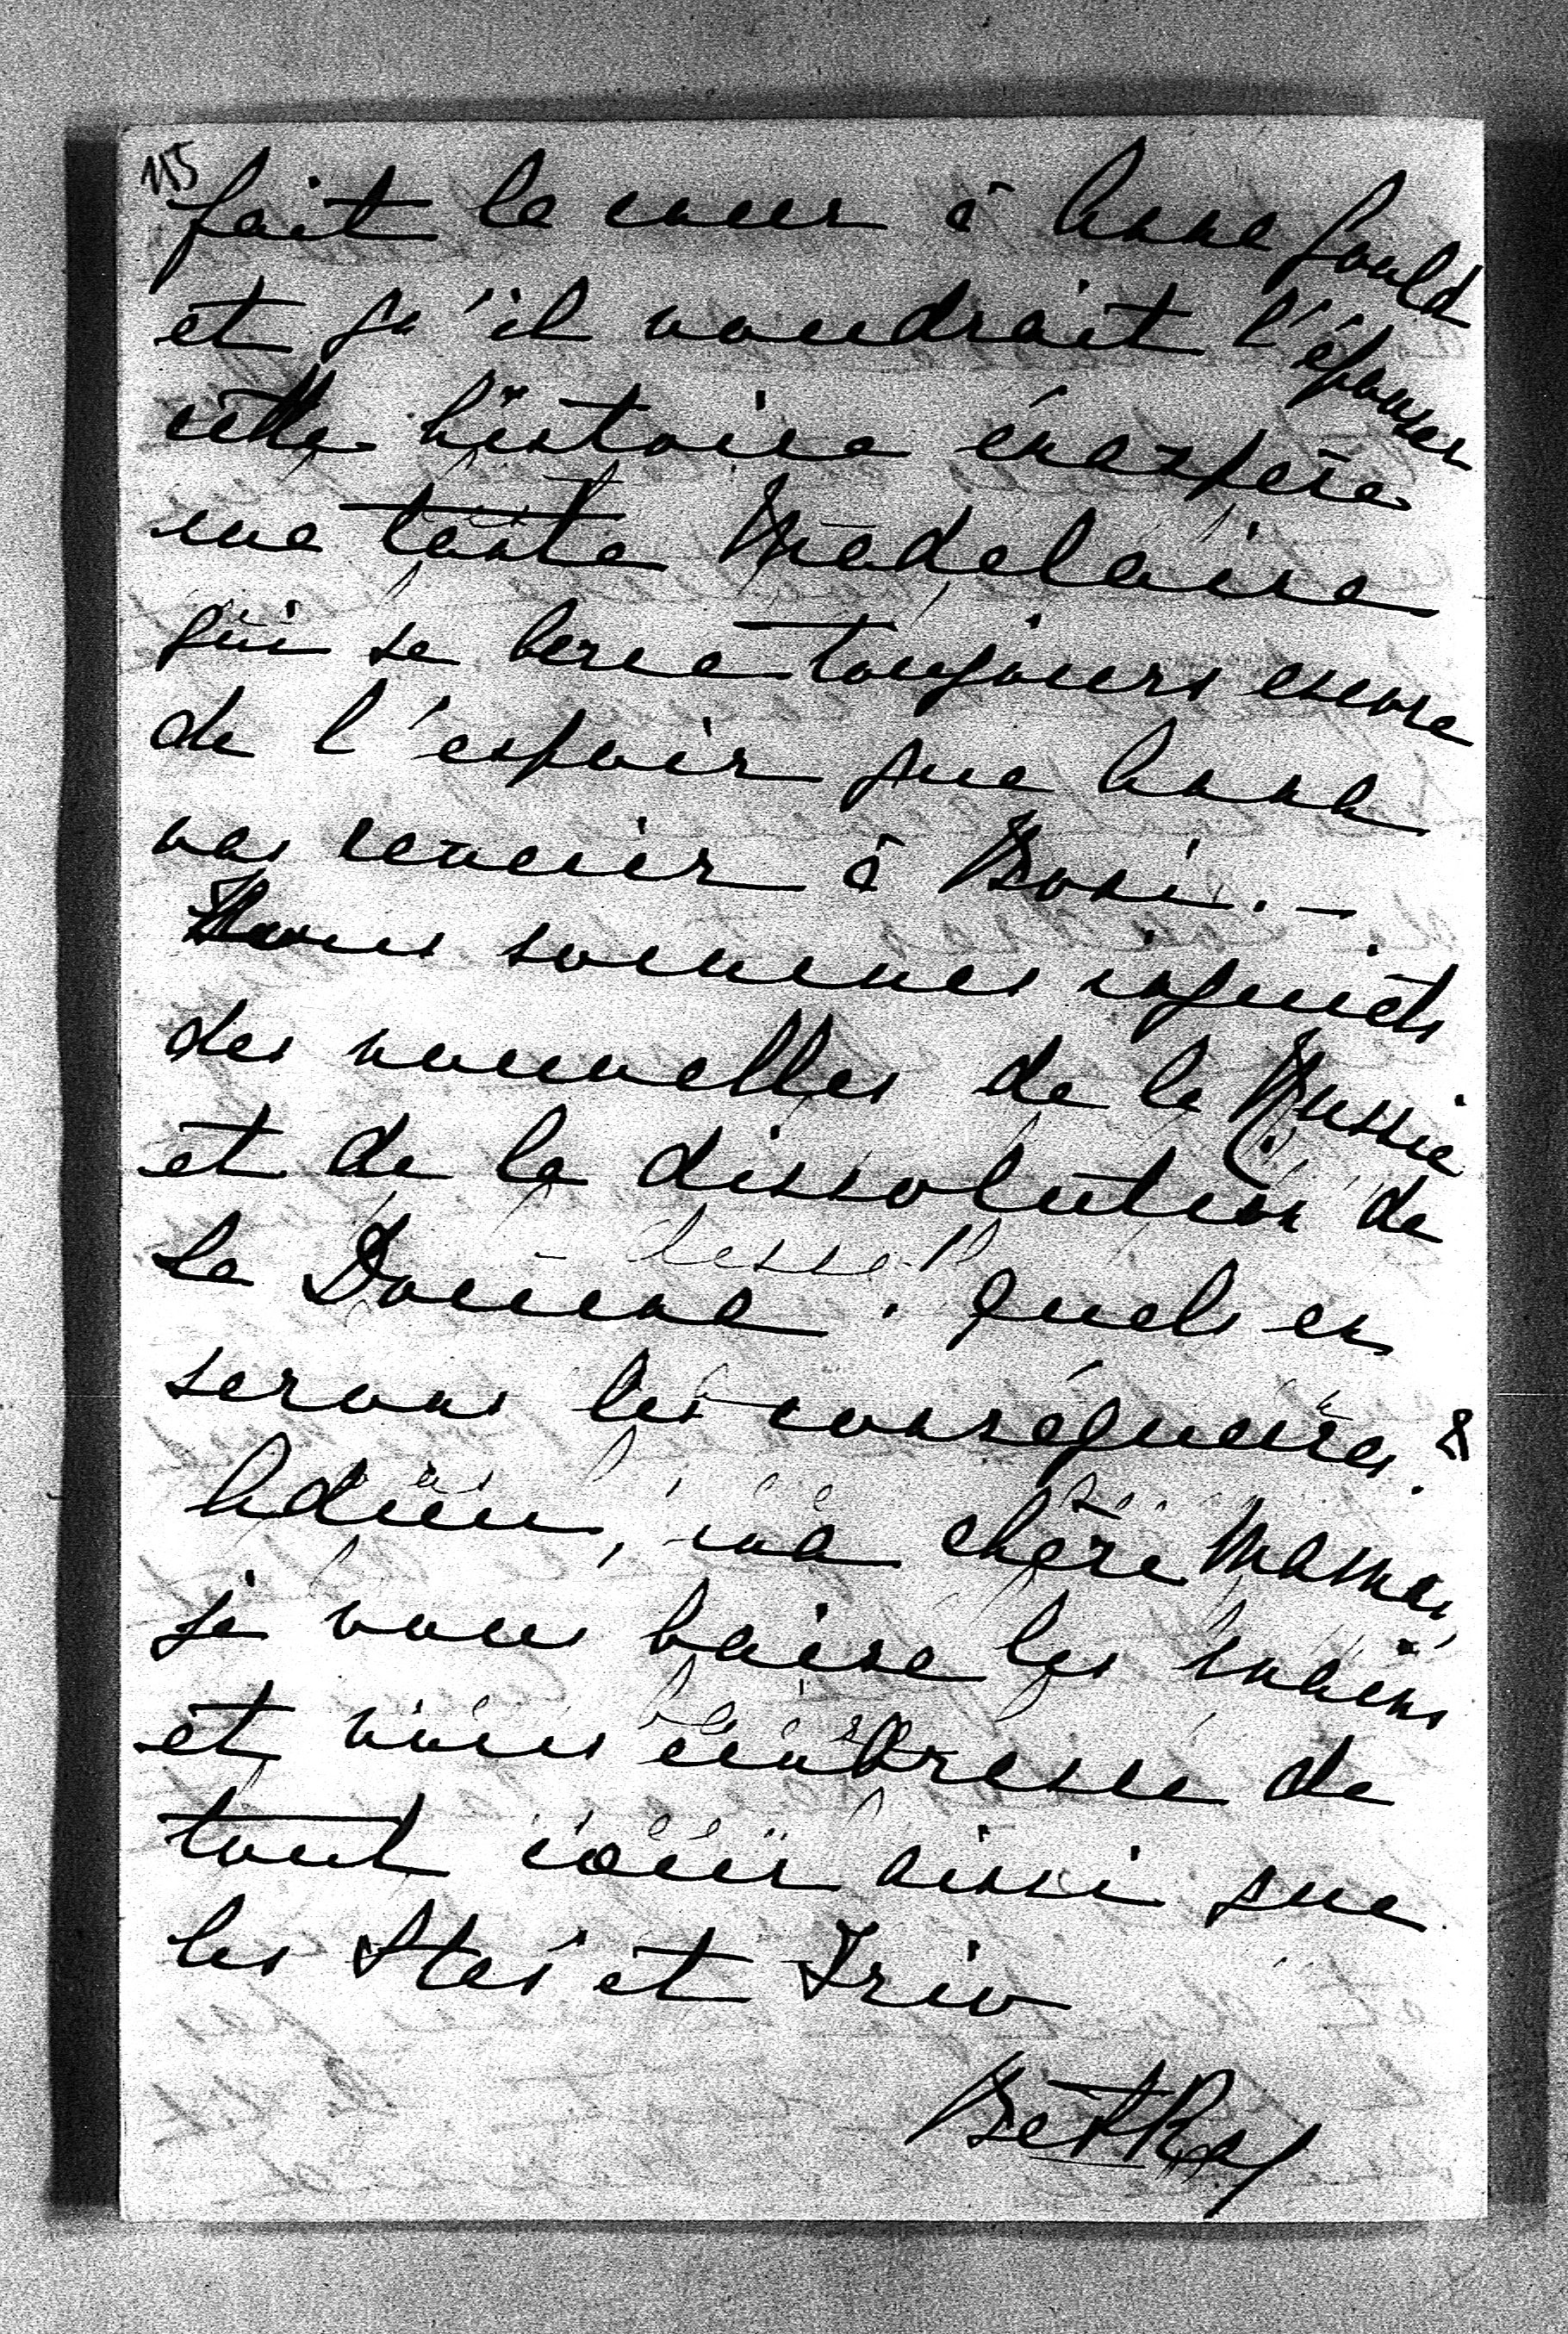 115
fait la cour à Anna Gould
et qu'il voudrait l'épouser
cette histoire exaspère
ma tante Madelaine
qui se berce toujours encore
de l'espoir que Anna
va revenir à Boni. —
Nous sommes inquiets
des nouvelles de la Russie
et de la dissolution de
la Douma. Quels en
serons les conséquences. &
Adieu, ma chère Maman,
je vous baise les mains
et vous embrasse de
tout cœur ainsi que
les Stas et
Betka